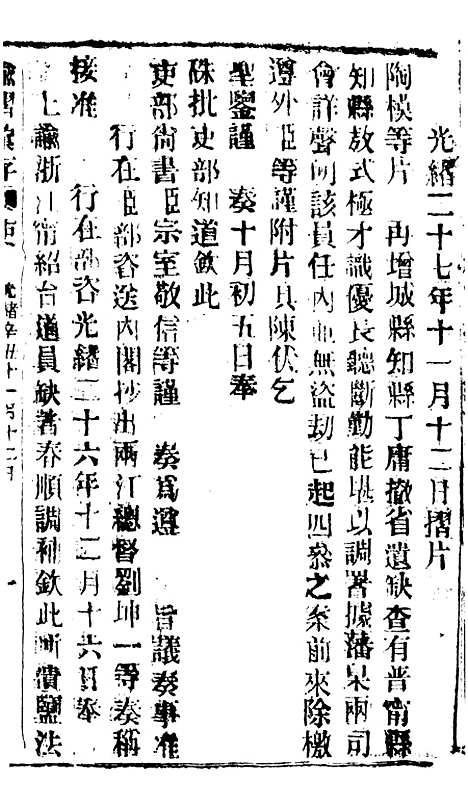 光緒二十七年十一月十二日摺片
陶模等片 再增城縣知縣丁庸撤省遺缺查有普甯縣
知縣敖式極才識優長聽斷勤能堪以調署據藩臬兩司
會詳聲明該員任內並無盜劫已起四參之案前來除檄
遵外臣等謹附片具陳伏乞
聖鑒謹 奏十月初五日奉
硃批吏部知道欽此
吏部尚書臣宗室敬信等謹 奏爲遵 旨議奏事准
行在臣部咨送內閣抄出兩江總督劉坤一等奏稱
接准 行在部咨光緒二十六年十二月十六日奉
上諭浙江甯紹台道員缺著春順調補欽此所遺鹽法
諭摺彙存 光緒辛丑十一月十二日 一